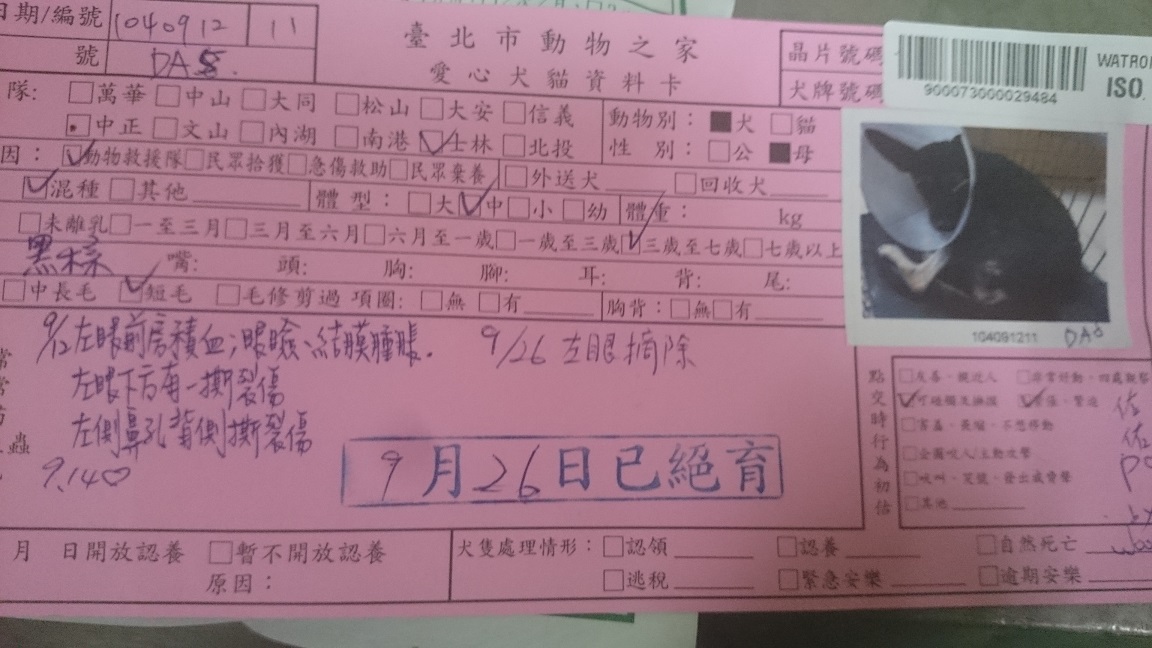 日期/編號 1040912 11
臺北市動物之家
晶片號碼
WATRO
ISO
900073000029484
號 DA8.
愛心犬貓資料卡
犬牌號碼
隊: □萬華 □中山 □大同 □松山 □大安 □信義 動物別: ■犬 □貓
□中正 □文山 □內湖 □南港 ☑士林 □北投 性 別: □公 ■母
因: ☑動物救援隊 □民眾拾獲 □急傷救助 □民眾棄養 □外送犬 □回收犬
☑混種 □其他 體 型: □大 ☑中 □小 □幼 體重: kg
□未離乳 □一至三月 □三月至六月 □六月至一歲 □一歲至三歲 ☑三歲至七歲 □七歲以上
黑棕 嘴: 頭: 胸: 腳: 耳: 背: 尾:
□中長毛 ☑短毛 □毛修剪過 項圈: □無 □有 胸背: □無 □有
104091211 DA8
9/12 左眼前房積血;眼瞼、結膜腫脹. 9/26 左眼摘除
左眼下方有一撕裂傷
左側鼻孔背側撕裂傷
蟲
9月26日已絕育
點交時行為初估
□友善、親近人
☑可碰觸及撫摸 ☑緊張、緊迫
□害羞、畏縮、不想移動
□企圖咬人/主動攻擊
□吠叫、哭號、發出威脅聲
□其他
佐佐
月 日開放認養 □暫不開放認養
原因:
犬隻處理情形: □認領 □認養 □自然死亡
□逃稅 □緊急安樂 □逾期安樂